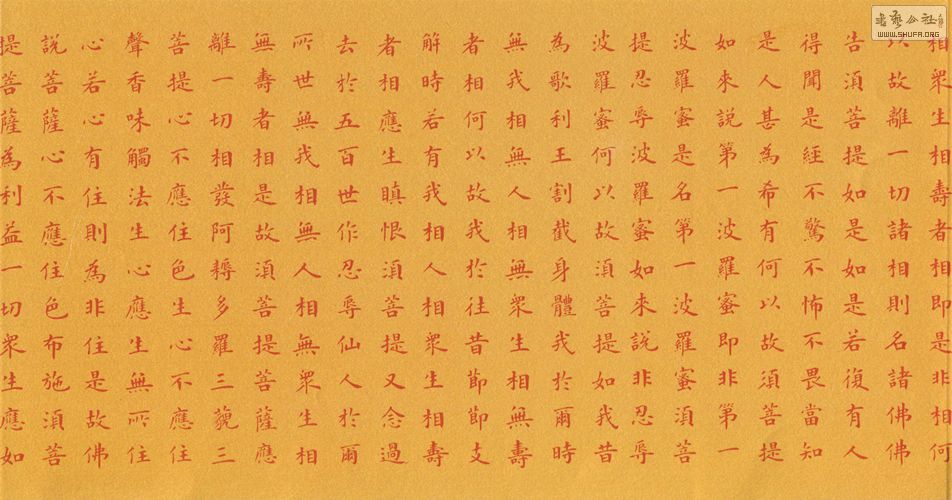 相眾生相壽者相即是非相何
以故離一切諸相則名諸佛佛
告須菩提如是如是若復有人
得聞是經不驚不怖不畏當知
是人甚為希有何以故須菩提
如來說第一波羅蜜即非第一
波羅蜜是名第一波羅蜜須菩
提忍辱波羅蜜如來說非忍辱
波羅蜜何以故須菩提如我昔
為歌利王割截身體我於爾時
無我相無人相無眾生相無壽
者相何以故我於往昔節節支
解時若有我相人相眾生相壽
者相應生瞋恨須菩提又念過
去於五百世作忍辱仙人於爾
所世無我相無人相無眾生相
無壽者相是故須菩提菩薩應
離一切相發阿耨多羅三藐三
菩提心不應住色生心不應住
聲香味觸法生心應生無所住
心若心有住則為非住是故佛
說菩薩心不應住色布施須菩
提菩薩為利益一切眾生應如
書藝公社
WWW.SHUFA.ORG